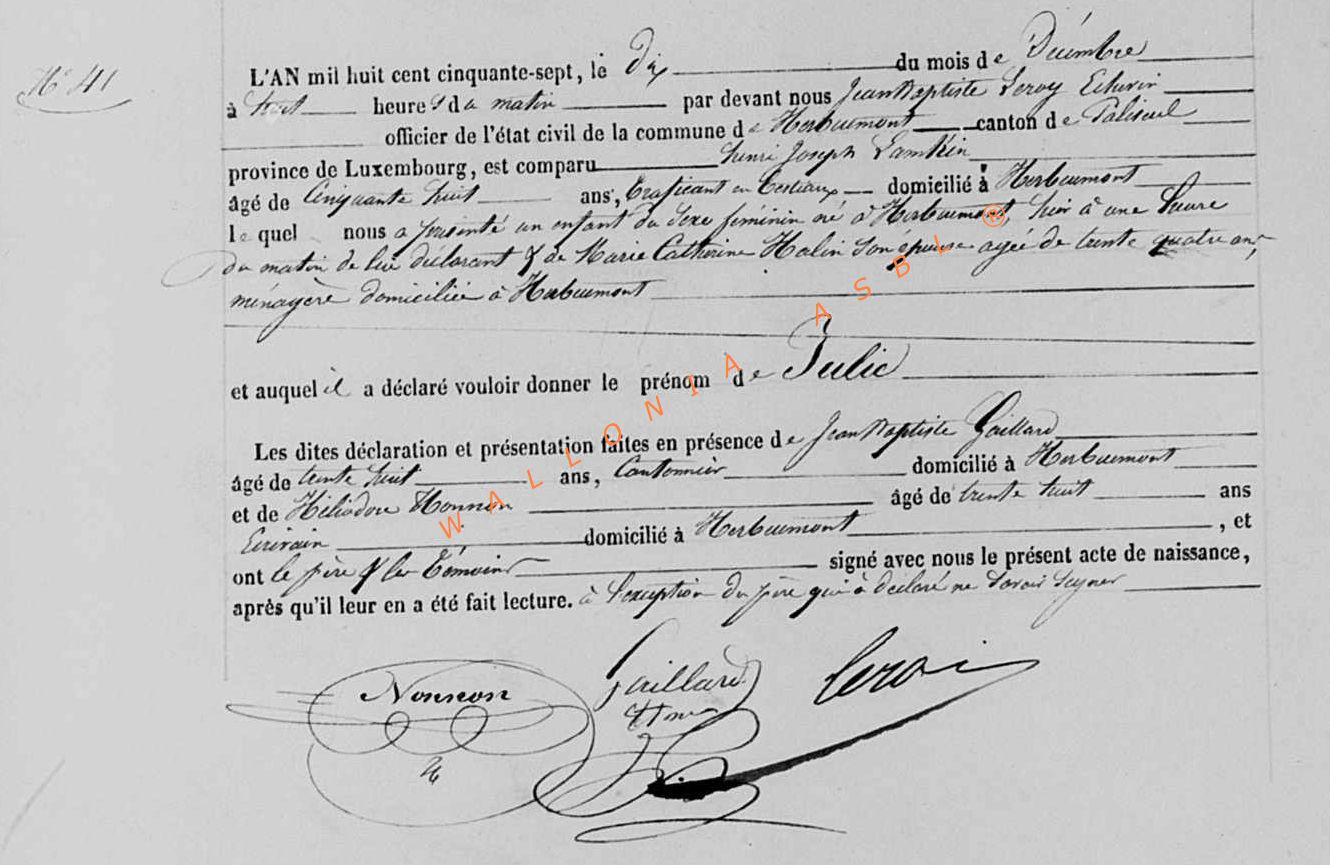 N° 41
L'AN mil huit cent cinquante-sept, le Dix du mois de Décembre
à huit heures du matin par devant nous Jean Baptiste Leroy Echevin
officier de l'état civil de la commune de Herbeumont canton de Paliseul
province de Luxembourg, est comparu henri Joseph Lamkin
âgé de Cinquante huit ans, trafiquant en bestiaux domicilié à Herbeumont
lequel nous a présenté un enfant du sexe féminin né à Herbeumont, hier à une heure
du matin de lui déclarant & de Marie Catherine Halin son épouse agée de trente quatre ans,
ménagère domiciliée à Herbeumont
et auquel il a déclaré vouloir donner le prénom de Julie
Les dites déclaration et présentation faites en présence de Jean Baptiste Gaillard
âgé de trente huit ans, Cantonnier domicilié à Herbeumont
et de Héliodore Nonnon âgé de trente huit ans
Ecrivain domicilié à Herbeumont, et
ont le père & les témoins signé avec nous le présent acte de naissance,
après qu'il leur en a été fait lecture. à l'exception du père qui à déclaré ne savoir signer
Nonnon Gaillard Leroi
WALLONIA ASBL ®